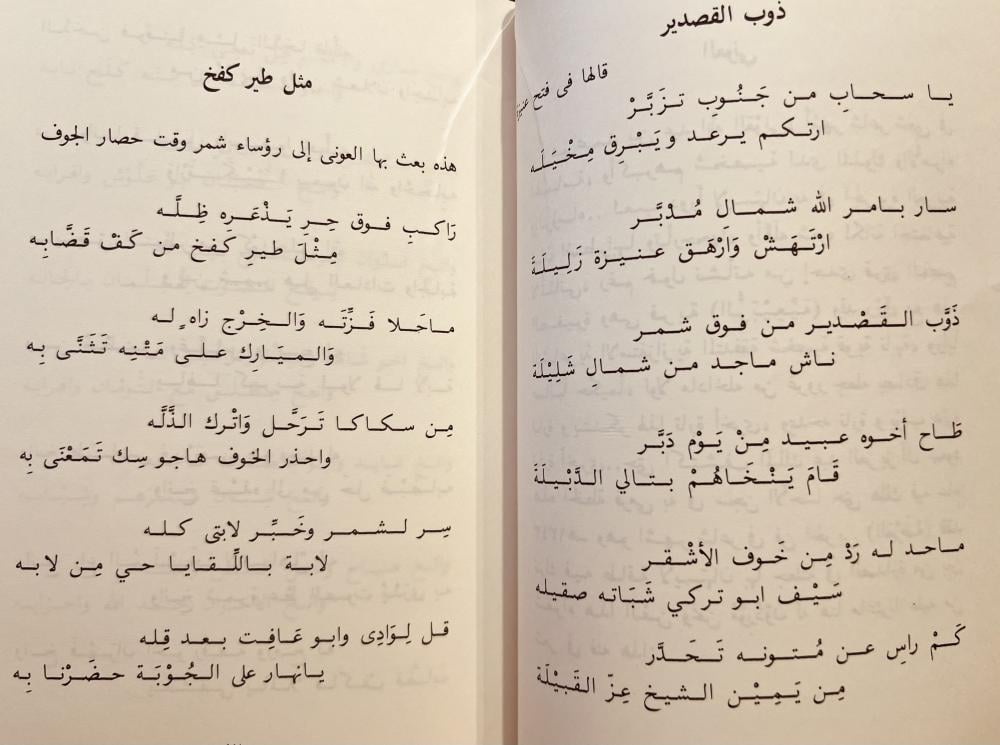 ذوب القصدير
قالها فى فتح عنيزة
يـا سـحـابِ مـن جَـنُـوبِ تـزبَّـرْ
ارتكـم يـرعـد و يَـبْـرِق مِـخْيَـلَه
سـار بـامـر الله شـمـالِ مُـدْبَّـر
ارْتَـهَـشْ وَارْهَـق عـنـيـزة زَلِـيـلَـة
ذَوَّب الـقَـصْـديـر مـن فـوق شـمـر
نـاش مـاجـد مـن شـمـالِ شَلِيْلَة
طَـاح أخـوه عـبـيـد مِـنْ يَـوْم دَبَّـر
قَـامَ يَـنْـخَـاهُـمْ بـتـالي الـدَّبْـيـلَـة
مـاحـد لـه رَدْ مِـن خَـوف الأشْـقـر
سَـيْـف ابـو تـركـي شَـبَـاتَه صقيله
كَـمْ راسِ عـن مُـتـونـه تَـحَـدَّر
مِـن يَـمِـيْـن الـشـيـخ عِـزّ القَبِيْلَة
مثل طير كفخ
هذه بعث بها العونى إلى رؤساء شمر وقت حصار الجوف
رَاكـبِ فـوق حِـرِ يَـذْعَـرِه ظِـلَّـه
مِـثْـلَ طـيـرِ كـفـخ مـن كَـفْ قَـضَّـابِـه
مـاحَـلا فَـزِّتَـه وَالـخِـرْج زاهٍ لـه
وَالـمـيَـارِك عـلـى مَـتْـنِـه تَـثَـنَّـى بِـه
مِـن سـكـاكـا تَـرَحَّـل وَاتْـرك الذَّلَّـه
واحـذر الخـوف هـاجـو سِـك تَـمَـعْـنَى بِه
سِـر لـشـمـر وخَـبِّـر لابتى كـلـه
لابـة بـاللِّـقـايـا حـي مِـن لابـه
قـل لِـوَادِى وابو عَـافِـت بـعـد قِله
يـانهـار على الـجُـوْبَـة حـضَـرْنـا بِـه